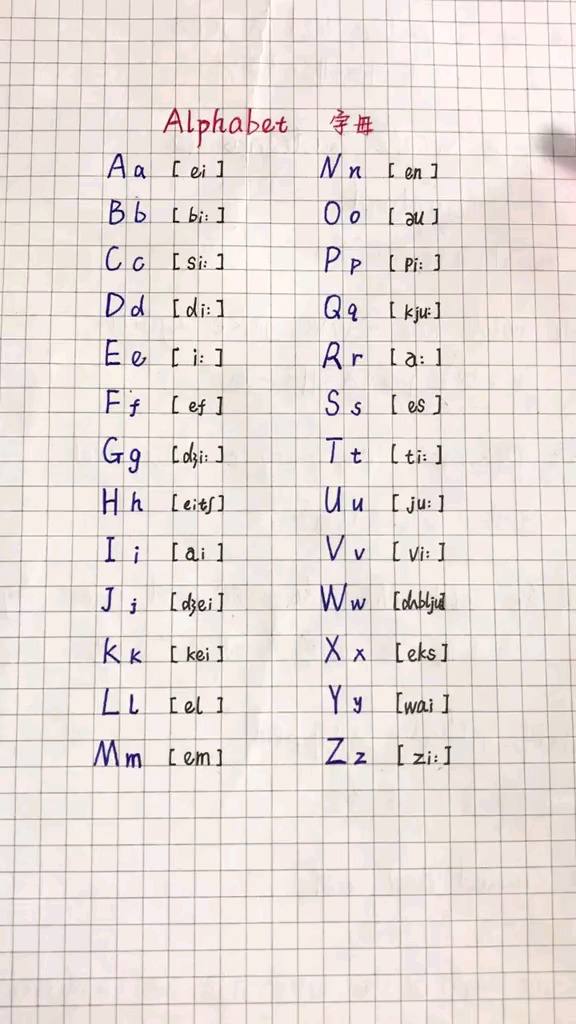 Alphabet 字母
A a [ ei ]
B b [ bi: ]
C c [ si: ]
D d [ di: ]
E e [ i: ]
F f [ ef ]
G g [dʒi: ]
H h [eitʃ]
I i [ ai ]
J j [dʒei ]
K k [ kei ]
L l [ el ]
M m [ em ]
N n [ en ]
O o [ əu ]
P p [ pi: ]
Q q [ kju: ]
R r [ a: ]
S s [ es ]
T t [ ti: ]
U u [ ju: ]
V v [ vi: ]
W w
X x [eks ]
Y y [wai ]
Z z [ zi: ]